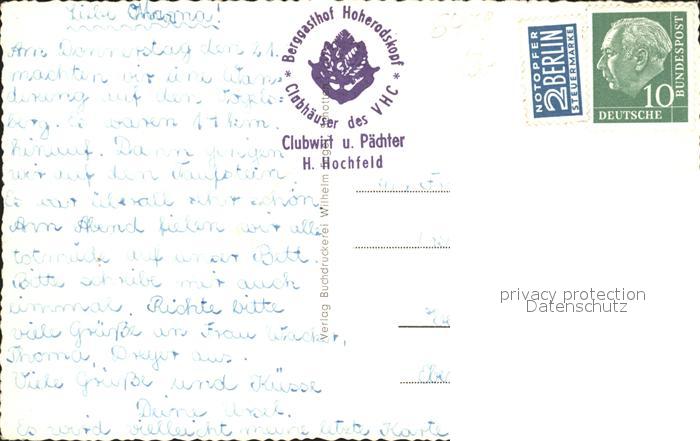 Liebe Omama!
Am Donnerstag den 21.
machten wir eine Wan-
derung auf den Vogels-
berg. Es waren 17 km.
hinauf. Dann gingen
wir auf den Taufstein
es war überall sehr schön.
Am Abend fielen wir alle
totmüde auf unser Bett.
Bitte schreibe mir auch
einmal. Richte bitte
viele Grüße an Frau
Thoma, Dreyer aus.
Viele Grüße und Küsse
Deine Uxel.
Es wird vielleicht meine letzte Karte
* Berggasthof Hoherodskopf *
Clubhäuser des VHC
Clubwirt u. Pächter
H. Hochfeld
Verlag Buchdruckerei Wilhelm Engel, Schotten
NOTOPFER
2 BERLIN
STEUERMARKE
10
DEUTSCHE
BUNDESPOST
privacy protection
Datenschutz